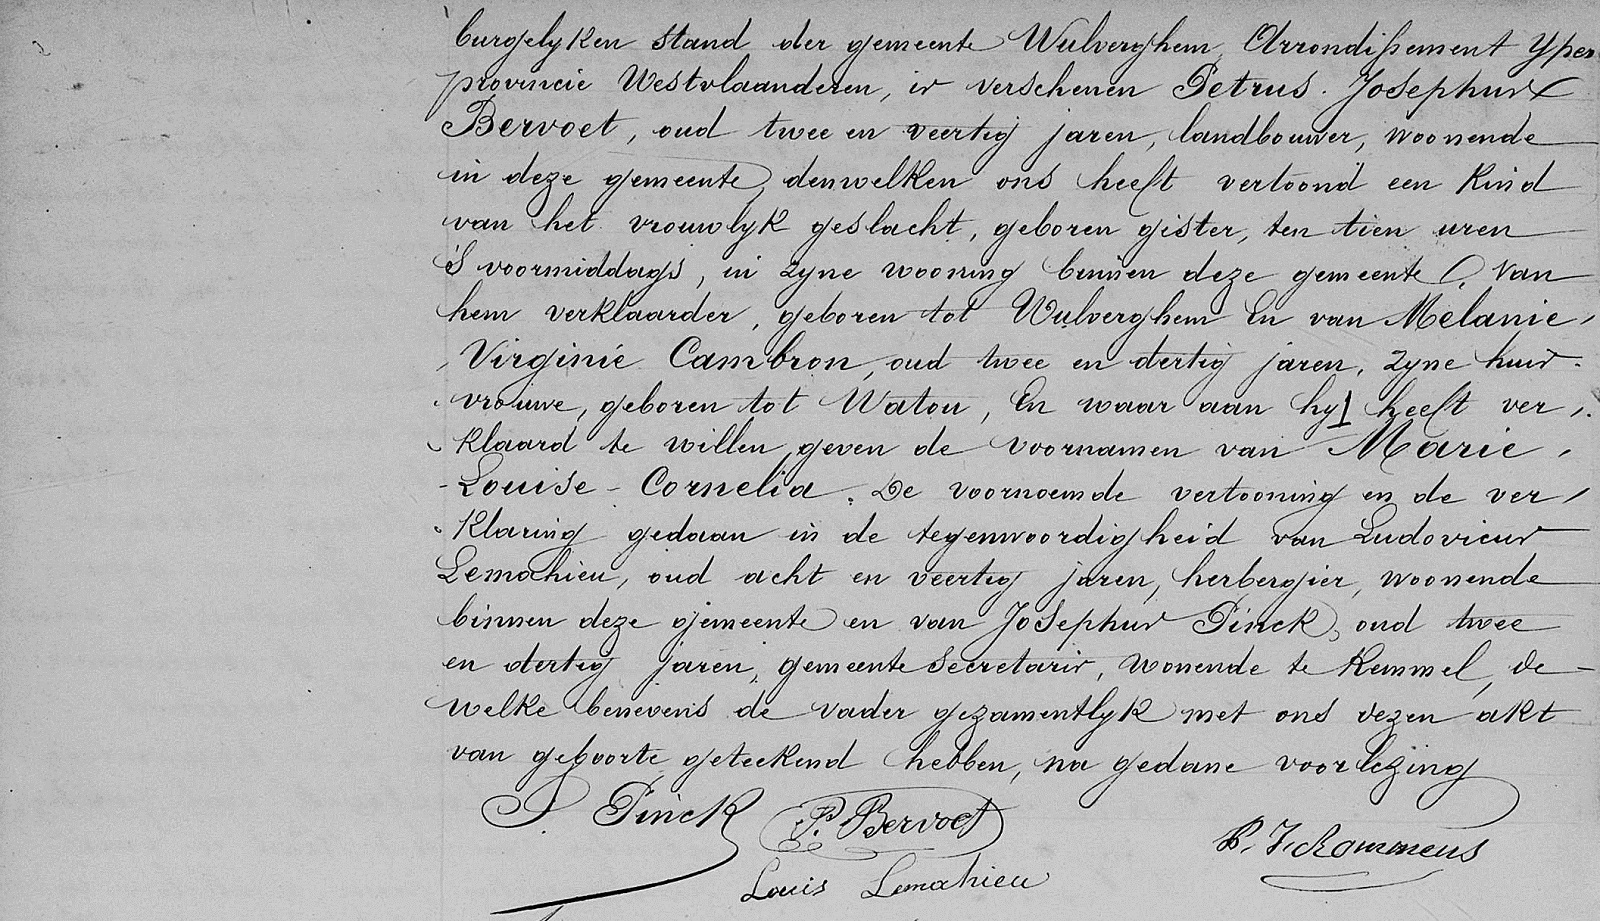 burgelyken stand der gemeente Wulverghem, Arrondissement Yper
provincie Westvlaanderen, is verschenen Petrus Josephus
Bervoet, oud twee en veertig jaren, landbouwer, woonende
in deze gemeente, denwelken ons heeft vertoond een Kind
van het vrouwlyk geslacht, geboren gister, ten tien uren
's voormiddags, in zyne wooning binnen deze gemeente, van
hem verklaarder, geboren tot Wulverghem En van Melanie
Virginie Cambron, oud twee en dertig jaren, zyne huis-
vrouwe, geboren tot Watou, En waar aan hy heeft ver-
klaard te willen geven de voornamen van Marie-
-Louise-Cornelia. De voornoemde vertooning en de ver-
klaring gedaan in de tegenwoordigheid van Ludovicus
Lemahieu, oud acht en veertig jaren, herbergier, woonende
binnen deze gemeente en van Josephus Pinck, oud twee
en dertig jaren, gemeente secretaris, wonende te Kemmel, de
welke benevens de vader gezamentlyk met ons dezen akt
van geboorte geteekend hebben, na gedane voorlezing
J. Pinck P. Bervoet
Louis Lemahieu